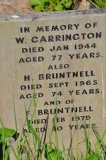 IN MEMORY OF
W. CARRINGTON
DIED JAN 1944
AGED 77 YEARS.
ALSO
H. BRUNTNELL
DIED SEPT 1965
AGED 74 YEARS.
AND OF
BRUNTNELL
DIED FEB 1979
YEARS.